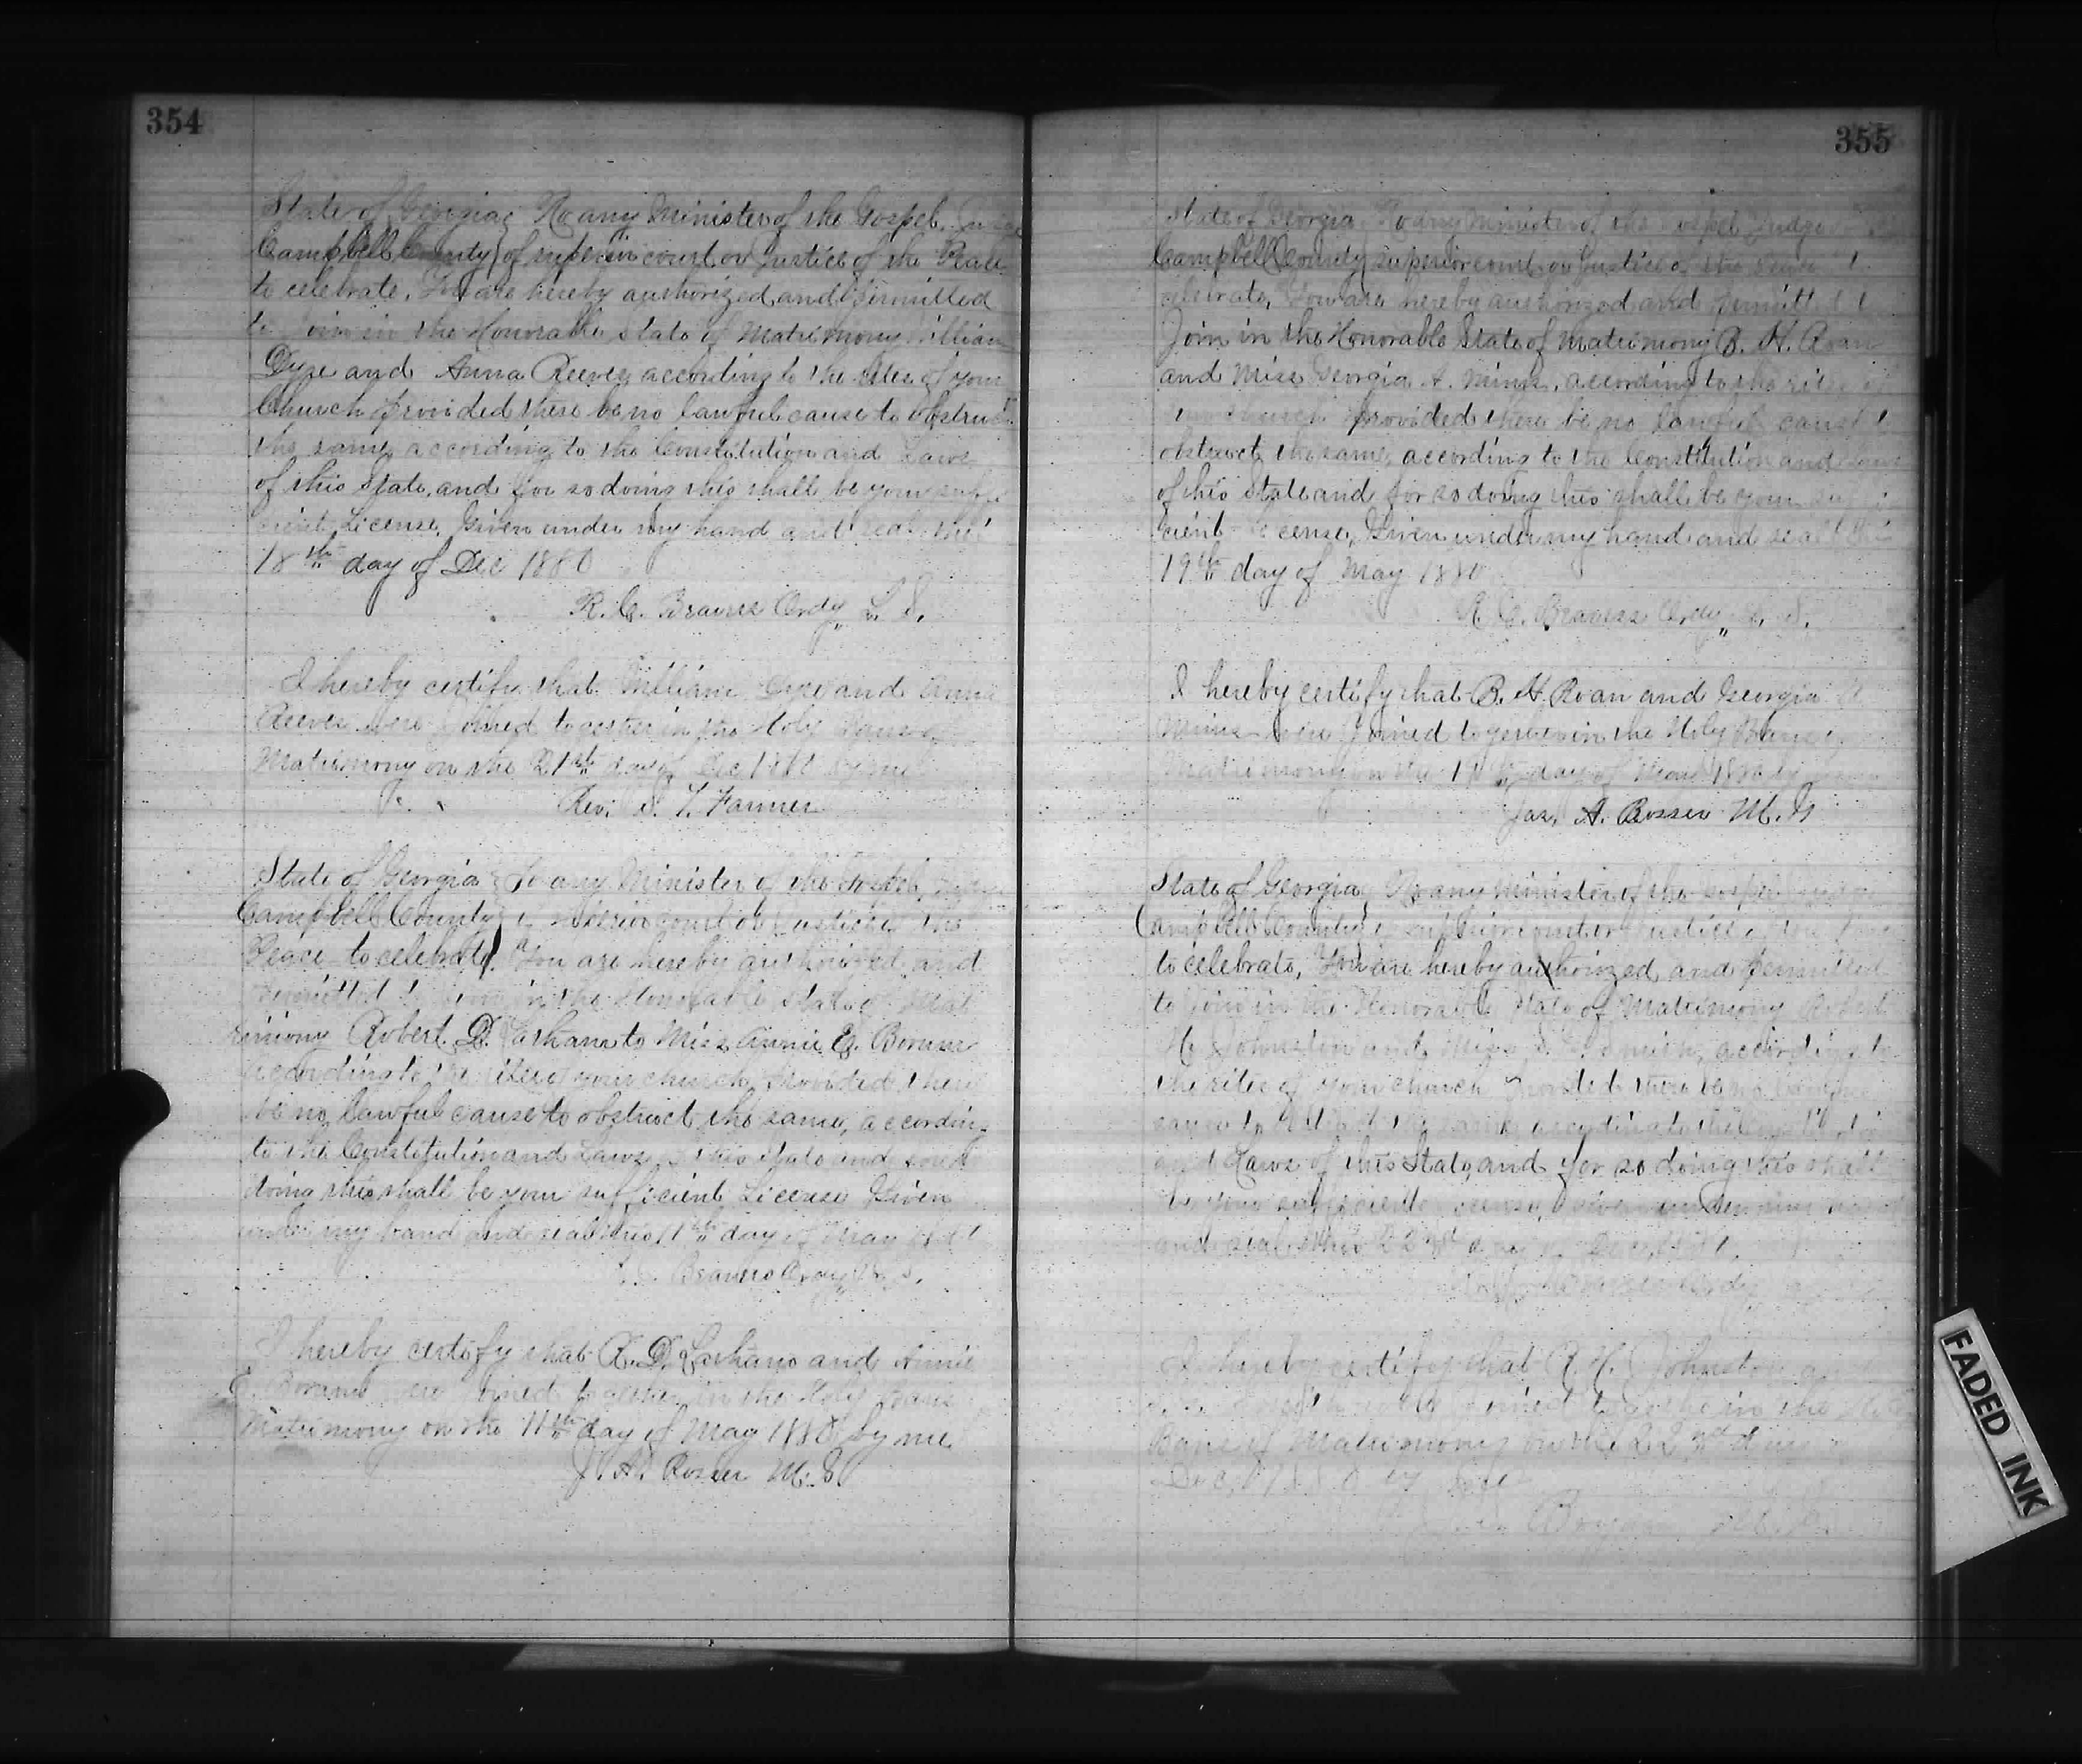 354
State of Georgia To any Minister of the Gospel,
Campbell County of superior court or Justice of the Peace
to celebrate. You are hereby authorized and permitted
to Join in the Honorable State of Matrimony William
Dyze and Anna Reeves according to the rites of your
Church provided there be no lawful cause to obstruct
the same according to the Constitution and Laws
of this State, and for so doing this shall be your suffi
cient License, Given under my hand and seal this
18th day of Dec 1880
R. C. Beavers Ordy L. S.
I hereby certify that William and Anna
Reeves were Joined together in the Holy Banes of
Matrimony on the 21st day of Dec 1880 by me
Rev: Farmer
State of Georgia To any Minister of the Gospel,
Campbell County of superior court or Justice of the
Peace to celebrate. You are hereby authorized and
permitted to Join in the Honorable State of Mat
rimony Robert D. to Miss Annie E.
according to the rites of your church, provided there
be no lawful cause to obstruct the same, according
to the Constitution and Laws of this State and for so
doing this shall be your sufficient License Given
under my hand and seal this 11th day of May
Beavers Ordy L. S.
I hereby certify that R. D. and Annie
E. were Joined together in the Holy Banes
Matrimony on the 11th day of May 1880 by me
J. A. Rosser M. G
355
State of Georgia To any Minister of the Gospel Judge
Campbell County superior court or Justice of the Peace
celebrate, You are hereby authorized and permitted
Join in the Honorable State of Matrimony B. H. Roan
and Miss Georgia A. Mims, according to the rites of
your church provided there be no lawful cause to
obstruct the same, according to the Constitution and Laws
of this State and for so doing this shall be your suffi
cient License, Given under my hand and seal this
19th day of May 1880
R. C. Beavers Ordy L. S.
I hereby certify that B. H. Roan and Georgia A
Mims were Joined together in the Holy Banes of
Matrimony on the day of May 1880 by
Jas. A. Rosser M. G
State of Georgia To any Minister of the Gospel
Campbell County of superior court or Justice of the Peace
to celebrate, You are hereby authorized and permitted
to Join in the Honorable State of Matrimony Robert
H. Johnston and Miss Smith, according to
the rites of your church provided there be no lawful
cause to obstruct the same according to the Constitution
and Laws of this State, and for so doing this shall
be your sufficient License, Given under my hand
and seal this 22nd day of Dec,
Beavers Ordy
I hereby certify that R. H. Johnston and
Smith were Joined together in the Holy
Banes of Matrimony on the 22nd day
Dec, 1880 by me
FADED INK